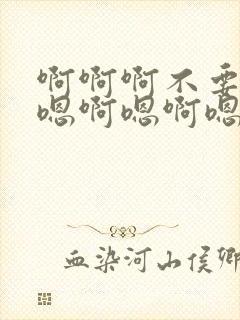 啊啊啊不要
嗯啊嗯啊嗯
血染河山侯卿